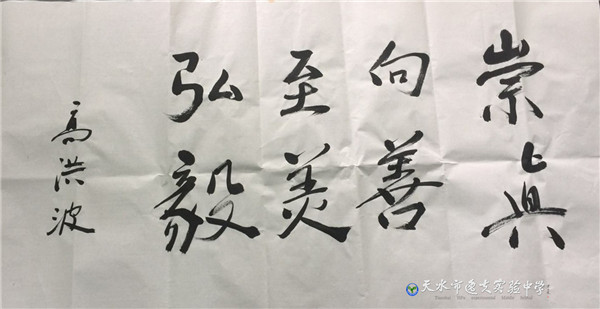 崇真
向善
至美
弘毅
高洪波
天水市逸夫实验中学